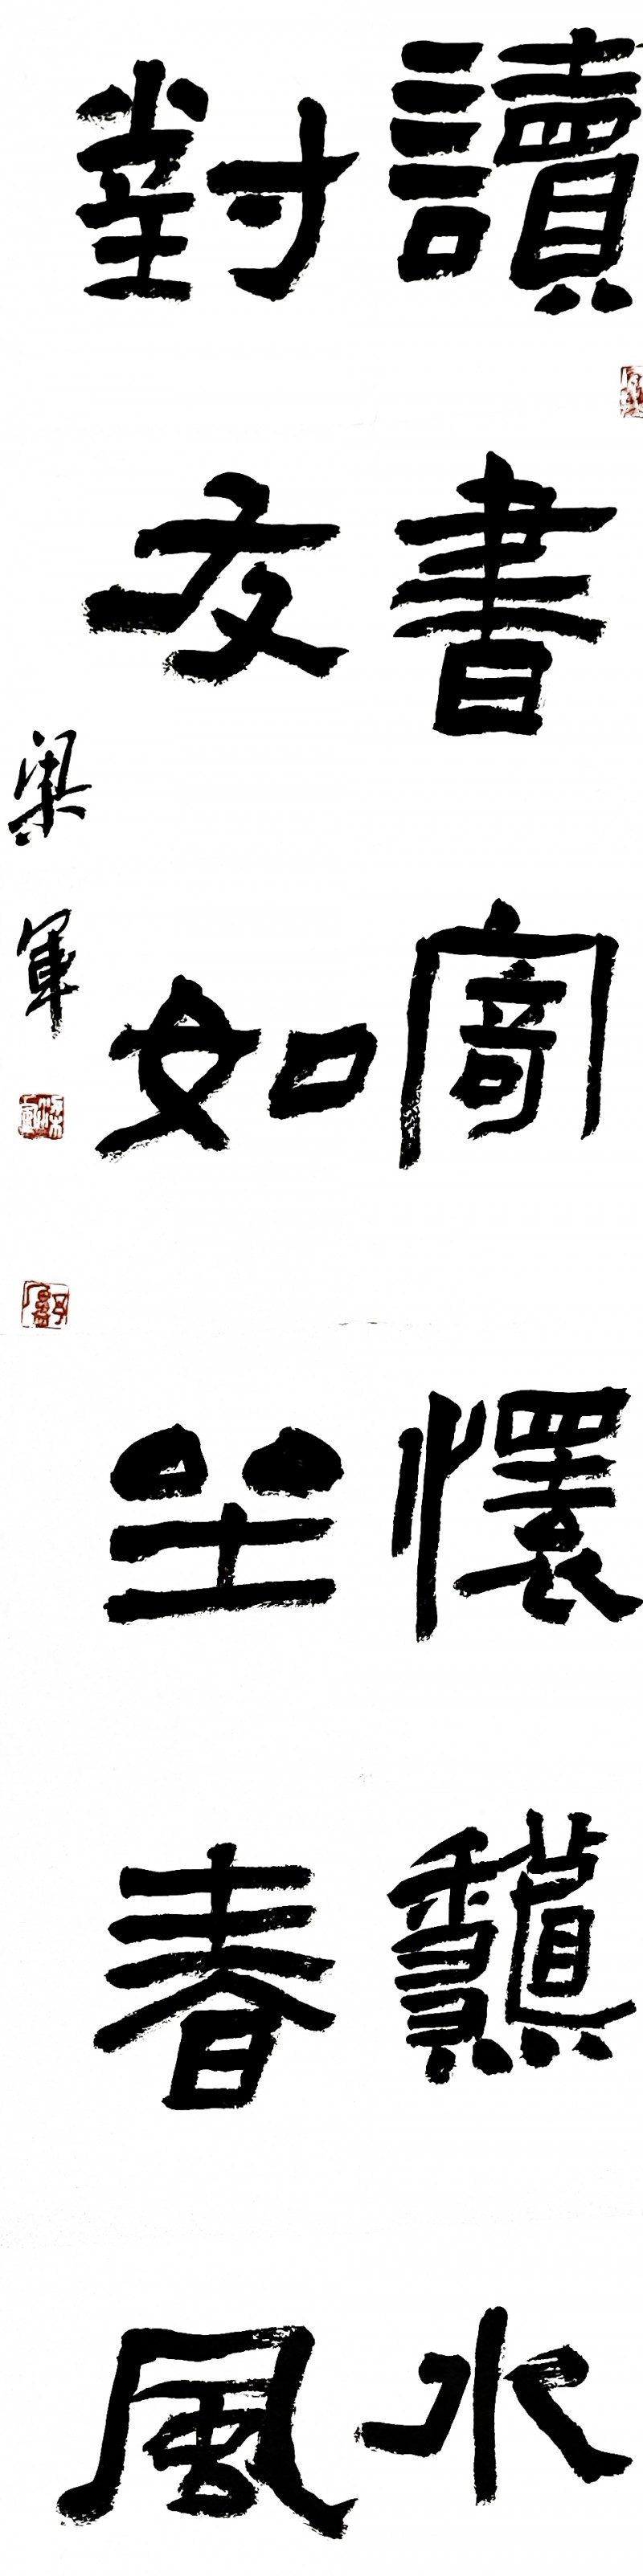 讀書寄懷龝水
對友如坐春風
梁軍